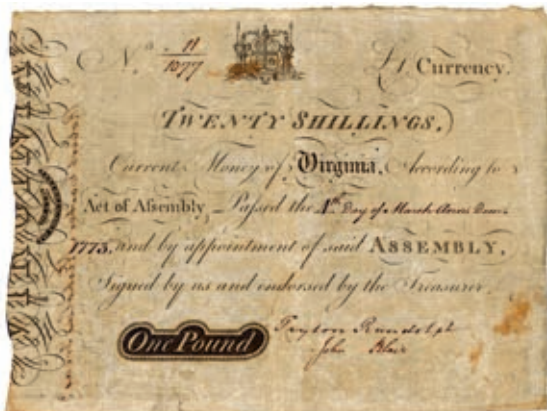 No. 11
1077
£1. Currency.
TWENTY SHILLINGS.
Current Money of Virginia, According to
Act of Assembly Passed the 4th Day of March Anno Dom.
1773, and by appointment of said ASSEMBLY,
Signed by us and endorsed by the Treasurer.
One Pound
Peyton Randolph
John Blair